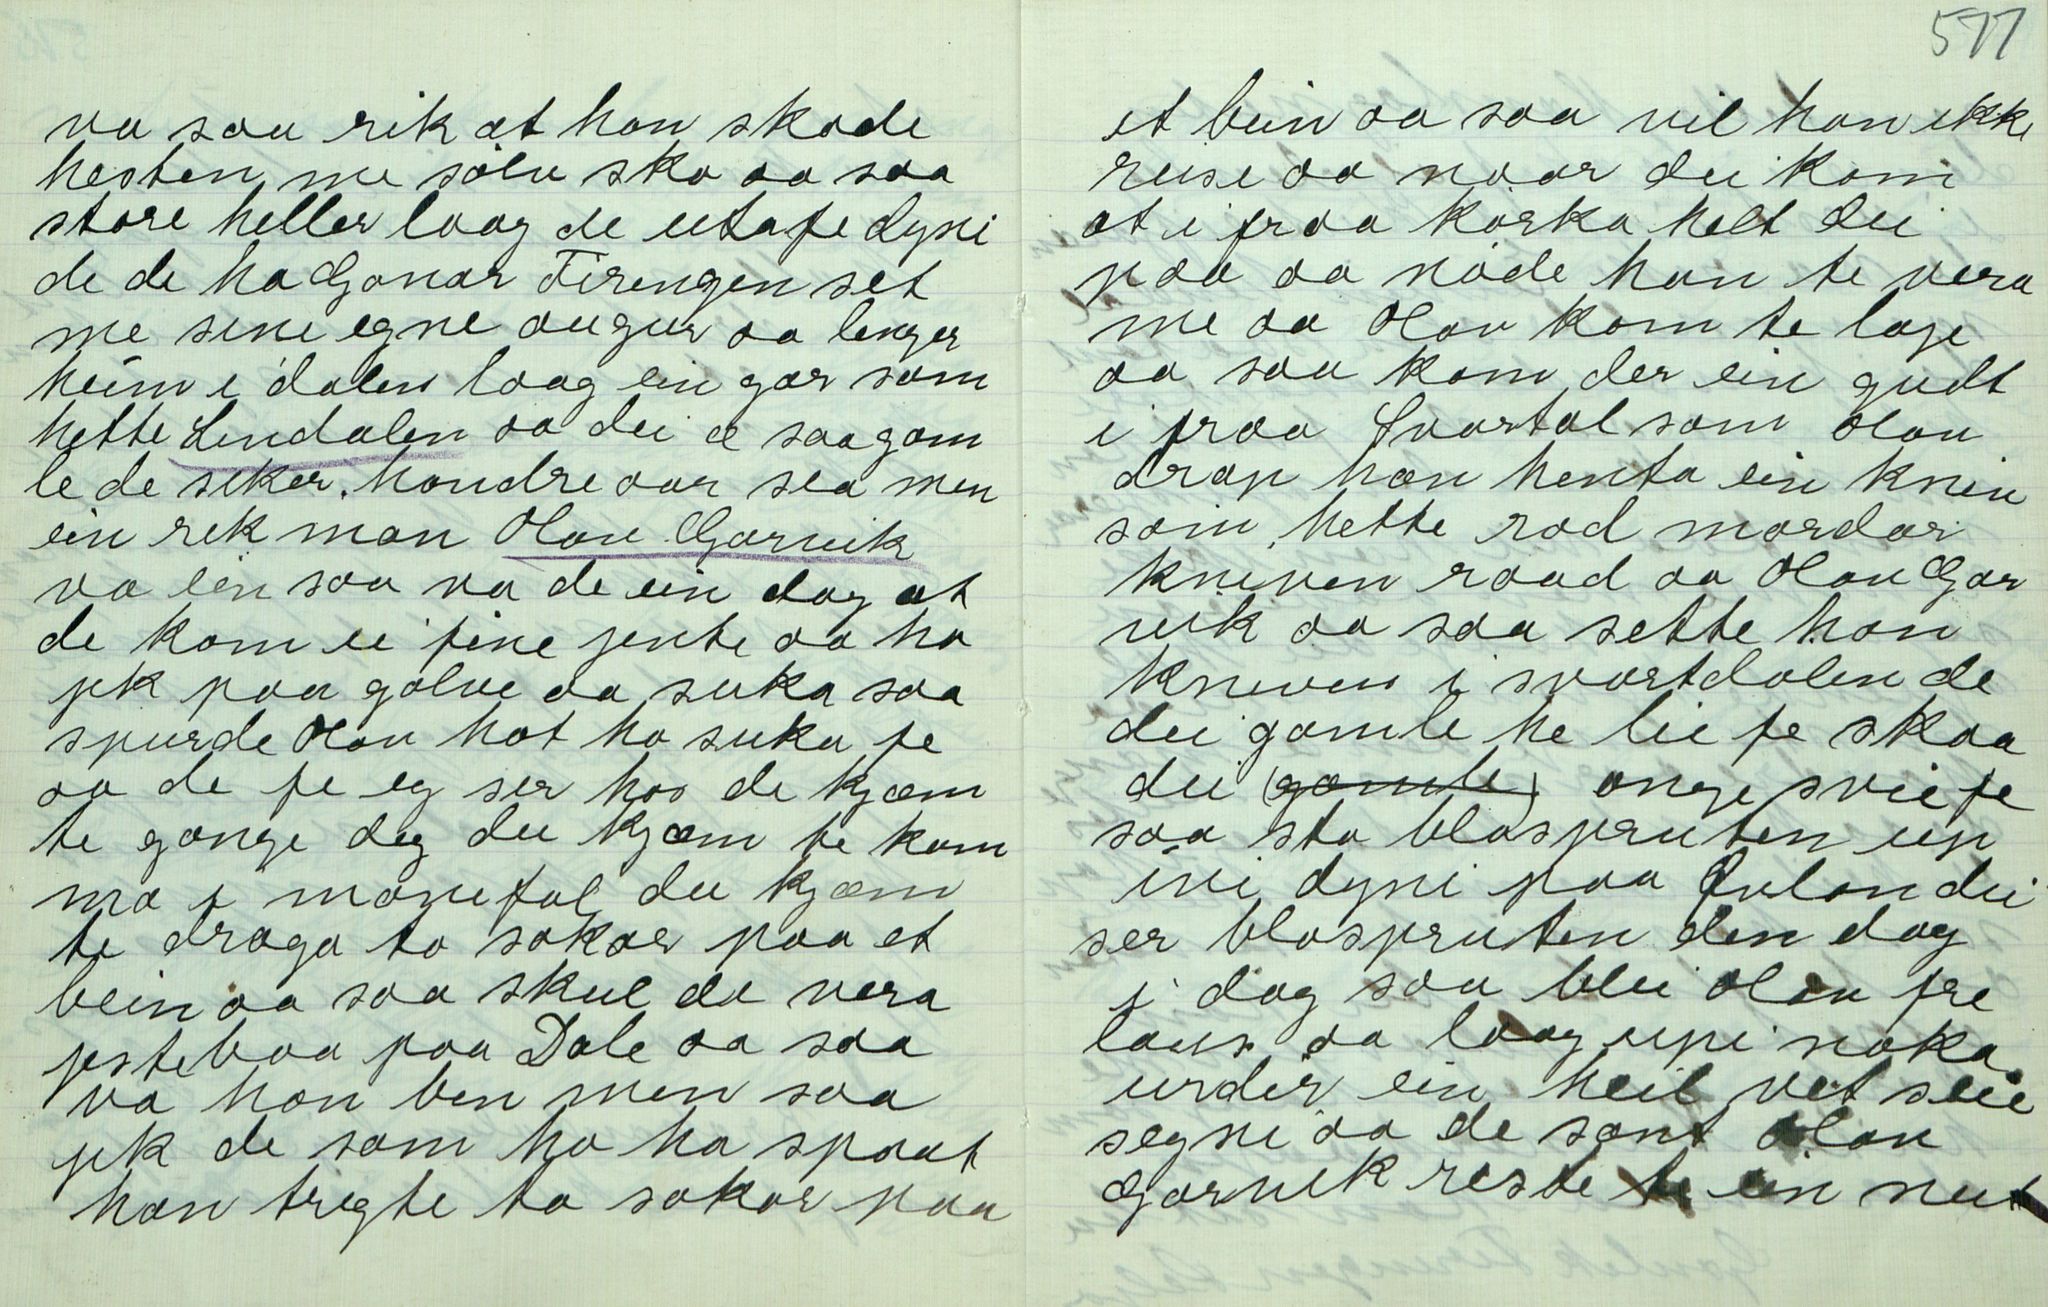 577
va saa rik at han skode
hesten me sølv sko aa saa
store heller laag de utafe dyri
de de ha Gonar Tirengen set
me sine egne augur aa lenger
heim i dalen laag ein gar som
hette Lindalen aa dei æ saa gam
le de seker hondre aar sea men
ein rik man Olav Garvik
va ein saa va de ein dag at
de kom ei fine jente aa ho
jik paa golve aa suka saa
spurde Olav hot ho suka fe
aa de fe eg ser hos de kjæm
te gange deg du kjæm te kom
ma i manefal du kjæm
te draga to sokar paa et
bein aa saa skul du vera
jsteboa paa Dale aa saa
va han ben men saa
jik de som ho ha spaat
han tregte to sokar paa
et bein aa saa vil han ikke
reise aa naar dei kom
at i fraa kørka helt dei
paa aa nøde han te vera
me aa Olav kom te lage
aa saa kom der ein gudt
i fraa Svartal som Olav
drap han henta ein kniv
som hette rød mordar
kniven raad aa Olav Gar
vik aa saa sette han
kniven i svartdalen de
dei gamle he lie fe skaa
dei (gamle) onge svie fe
saa sto blospruten up
ini dyri paa Kvlan dei
ser blospruten den dag
i dag saa blei Olav fre
laus aa laag upi noka
urder ein heil vet seie
segni aa de sant Olav
Garvik reste te ein nut